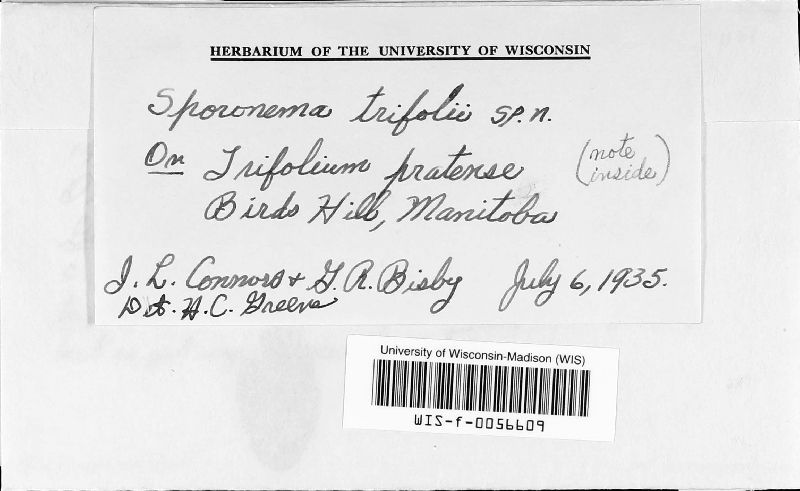 HERBARIUM OF THE UNIVERSITY OF WISCONSIN
Sporonema trifolii sp. n.
On Trifolium pratense
(note inside)
Birds Hill, Manitoba
I. L. Connors & G. R. Bisby July 6, 1935.
Det. H. C. Greene
University of Wisconsin-Madison (WIS)
WIS-f-0056609